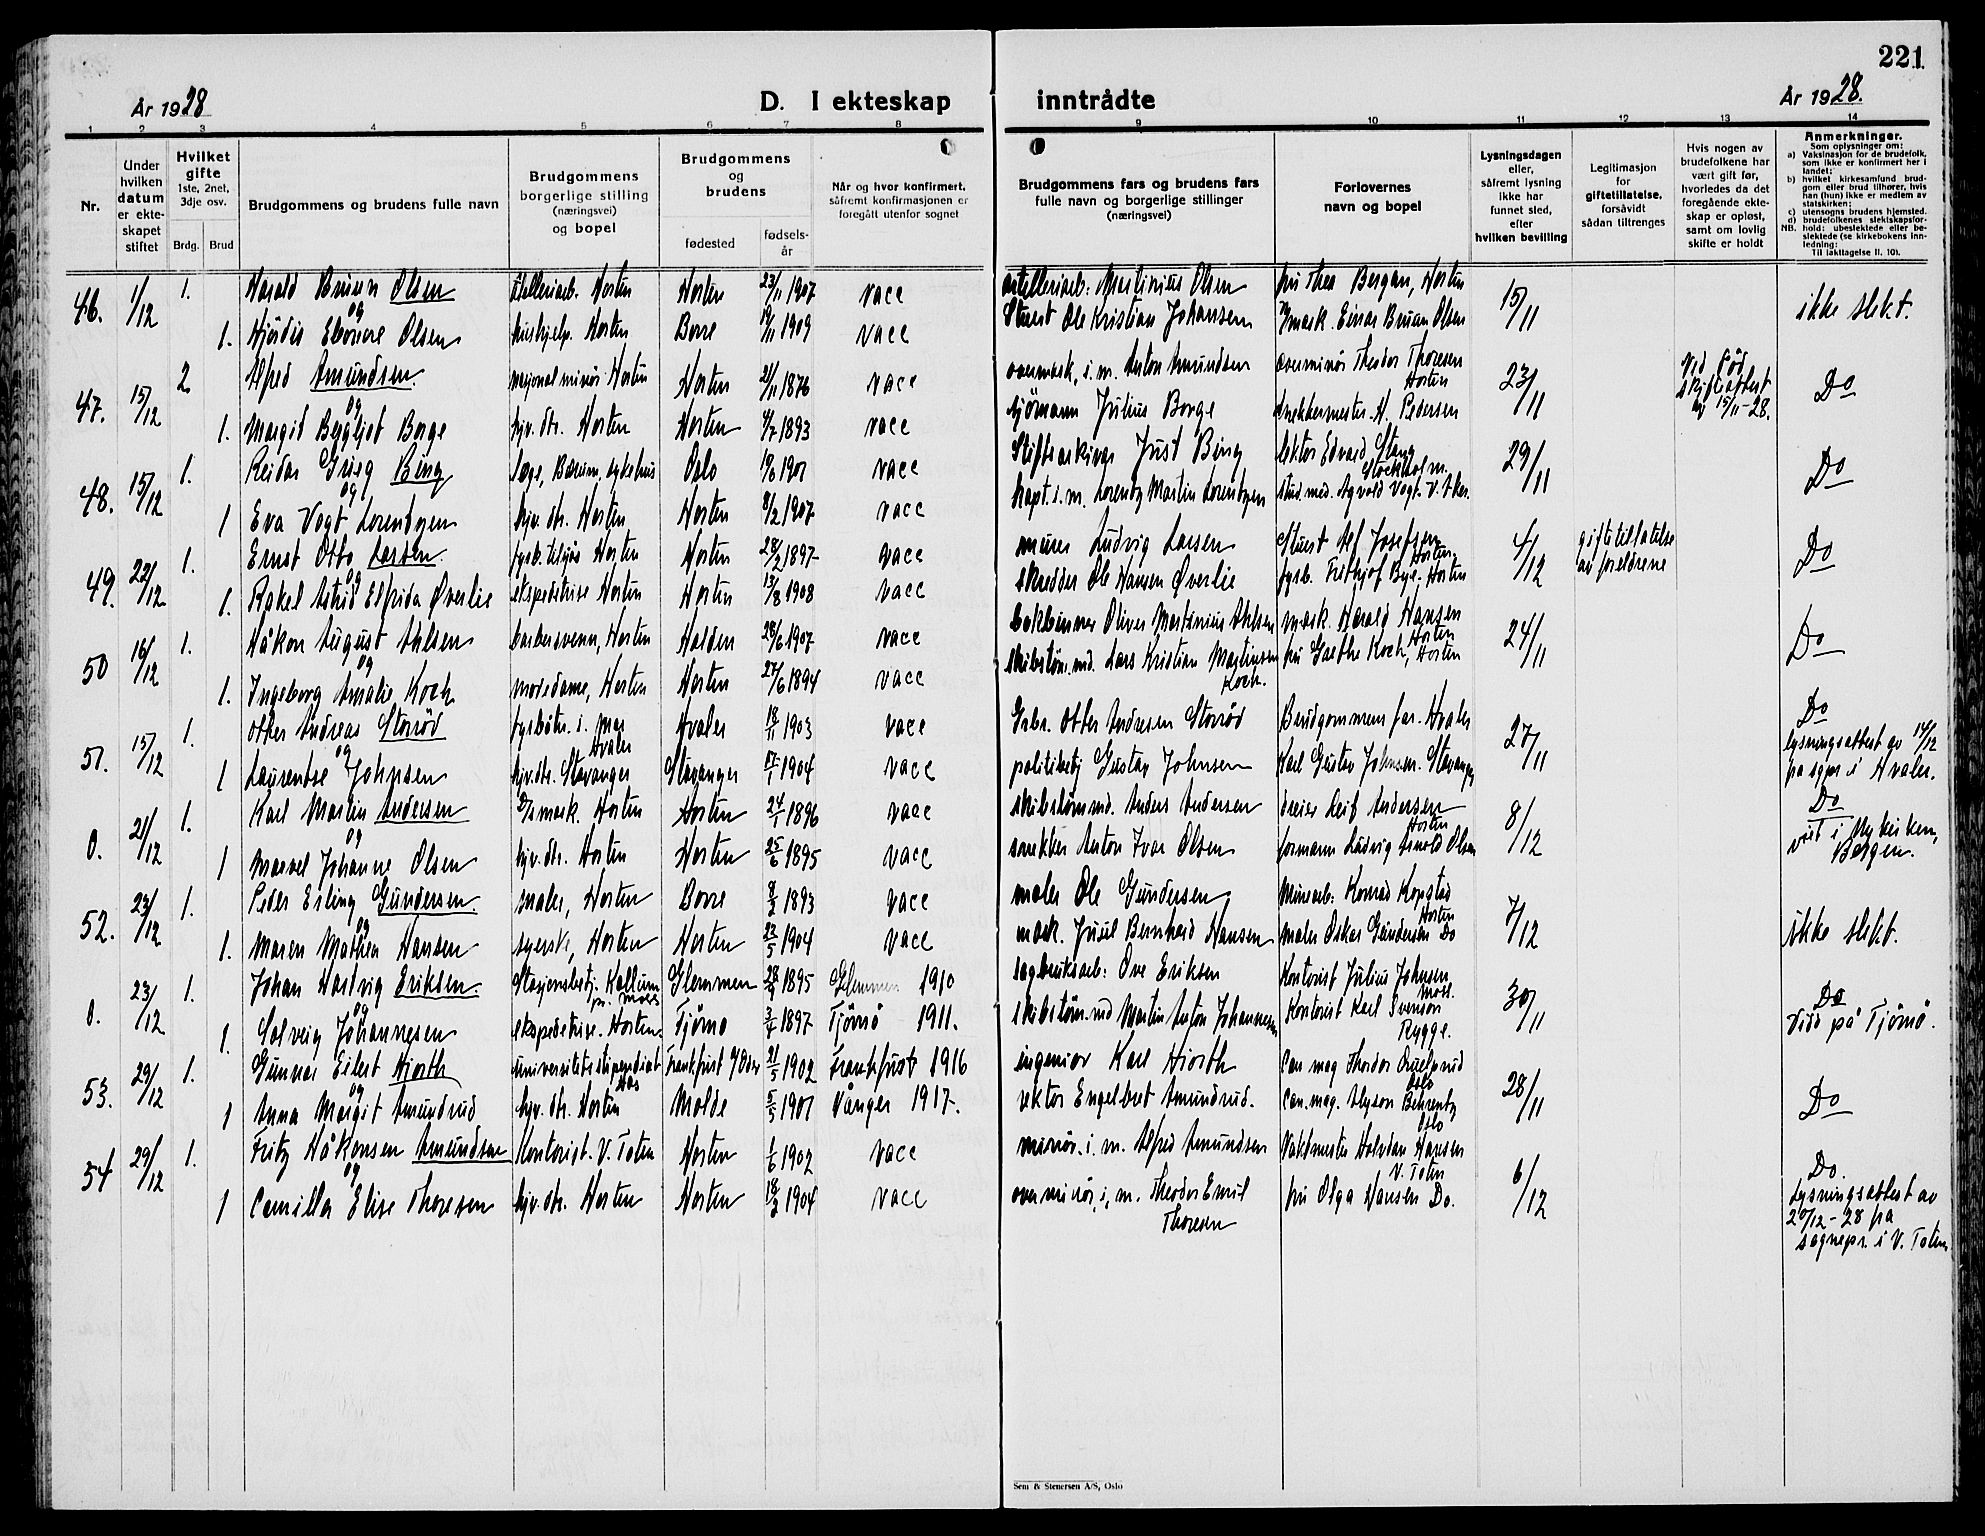 221
År 1928
D. I ekteskap inntrådte
År 1928.
1 2 3 4 5 6 7 8 9 10 11 12 13 14
Nr.
Under hvilken datum er ekteskapet stiftet
Hvilket gifte 1ste, 2net, 3dje osv.
Brdg. Brud
Brudgommens og brudens fulle navn
Brudgommens borgerlige stilling (næringsvei) og bopel
Brudgommens og brudens
fødested
fødselsår
Når og hvor konfirmert, såfremt konfirmasjonen er foregått utenfor sognet
Brudgommens fars og brudens fars fulle navn og borgerlige stillinger (næringsvei)
Forlovernes navn og bopel
Lysningsdagen eller, såfremt lysning ikke har funnet sted, efter hvilken bevilling
Legitimasjon for giftetillatelse, forsåvidt sådan tiltrenges
Hvis nogen av brudefolkene har vært gift før, hvorledes da det foregående ekteskap er opløst, samt om lovlig skifte er holdt
Anmerkninger.
Som oplysninger om:
a) Vaksinasjon for de brudefolk, som ikke er konfirmert her i landet;
b) hvilket kirkesamfund brudgom eller brud tilhører, hvis han (hun) ikke er medlem av statskirken;
c) utensogns brudens hjemsted.
d) brudefolkenes slektskapsforhold: ubeslektede eller beslektede (se kirkebokens innledning:
NB. Til iakttagelse II. 10).
46. 1/12 1. Harald Bruun Olsen Horten Horten 23/11 1907 vacc Martinius Olsen fru Thea Bergan, Horten 15/11 ikke slekt.
og
1. Hjördis Olsen Horten Borre 19/11 1909 vacc Ole Kristian Johansen Einar Bruun Olsen
47. 15/12 2 Alfred Amundsen. Horten Horten 21/11 1876 vacc Anton Amundsen overminör Theodor Thoresen Horten 23/11 15/11-28. Do
og
1. Margit Bergljot Borge hjv. dtr. Horten Horten 4/7 1893 vacc sjömann Julius Borge snekkermester H. Pedersen
48. 15/12 1. Reidar Grieg Bing læge, Bærum, sykehus Oslo 1901 vacc Stiftsarkivar Just Bing lektor Edvard Stang Stockholm. 29/11 Do
og
1 Eva Vogt Lorentzen hjv. dtr. Horten Horten 8/2 1907 vacc kapt. i. m. Lorentz Martin Lorentzen stud. med. Vogt. V. Aker.
49. 22/12 1. Ernst Otto Larsen. Horten Horten 28/2 1897 vacc murer Ludvig Larsen Alf Josefsen Horten. 4/12 giftetillatelse av foreldrene Do
og
1. Rakel Astrid Elfrida Øverlie ekspeditrise Horten Horten 13/8 1908 vacc skredder Ole Hansen Øverlie fyrb. Frithjof Bye. Horten
50 16/12 1. Håkon August Ahlsen barbersvenn, Horten Halden 28/6 1907 vacc bokbinner Oliver Martinius Ahlsen mask. Harald Hansen Horten 24/11 Do
og
1. Ingeborg Amalie Koch motedame, Horten Horten 27/6 1894 vacc skibstöm.md. Lars Kristian Martinsen Koch. fru Koch, Horten
51. 15/12 1. Otter Andreas Storröd fyrböter. i. mar Hvaler Hvaler 18/11 1903 vacc Otter Andresen Storröd Brudgommens far. Hvaler 27/11 Do lysningsattest av 14/12 på sgpr i Hvaler.
og
1 Laurentse Johnsen hjv. dtr. Stavanger Stavanger 1904 vacc politibetj Gustav Johnsen Karl Gustav Johnsen. Stavanger
0. 21/12 1. Karl Martin Andersen mask. Horten Horten 24/1 1896 vacc skibstöm md. Anders Andersen dreier Leif Andersen Horten 8/12 Do viet i Bergen.
og
1 Johanne Olsen hjv. dtr. Horten Horten 25/6 1895 vacc snekker Anton Ivar Olsen formann Ludvig Arnold Olsen
52. 23/12 1. Peder Erling Gundersen. maler, Horten Borre 8/2 1893 vacc maler Ole Gundersen Minearb: Konrad Kopstad Horten 7/12 ikke slekt.
og
1. Maren Mathea Hansen syerske, Horten Horten 22/5 1904 vacc mask. Juul Bernhard Hansen maler Oskar Gundersen Do
0. 23/12 1. Johan Hartvig Eriksen. Stasjonsbetj. Kallum pr. Moss Glemmen 1895 Glemmen 1910 sagbruksarb: Ove Eriksen Kontorist Julius Johnsen Moss. 30/11 Do Viss på Tjömö.
og
1. Solveig Johannesen ekspeditrise. Horten. Tjömö 3/4 1897 Tjömö 1911. skibstöm. md Martin Anton Johannesen Kontorist Karl Svenson Rygge.
53. 29/12 1. Gunnar Eilert Hjorth universitetsstipendiat Aas Frankfurt 1902 Frankfurt 1916 ingeniør Karl Hjorth Can mag Thordor Oslo 28/11 Do
og
1 Anna Margit Amundrud hjv. dtr. Horten Molde 5/5 1901 Vanger 1917. rektor Engelbret Amundrud. Can. mag. Behrentz Oslo
54 29/12 1. Fritz Håkonsen Amundsen Kontorist. V. Toten Horten 1/6 1902 vacc minör. i. m. Alfred Amundsen Vaktmester Halvdan Hansen V. Toten 6/12 Do. Lysningsattest av 20/12-28 på sognepr. i V. Toten
og
1 Camilla Elise Thoresen hjv. dtr. Horten Horten 18/2 1904 vacc overminör, i, m. Theodor Emil Thoresen fru Olga Hansen Do.
Sem & Stenersen A/S, Oslo